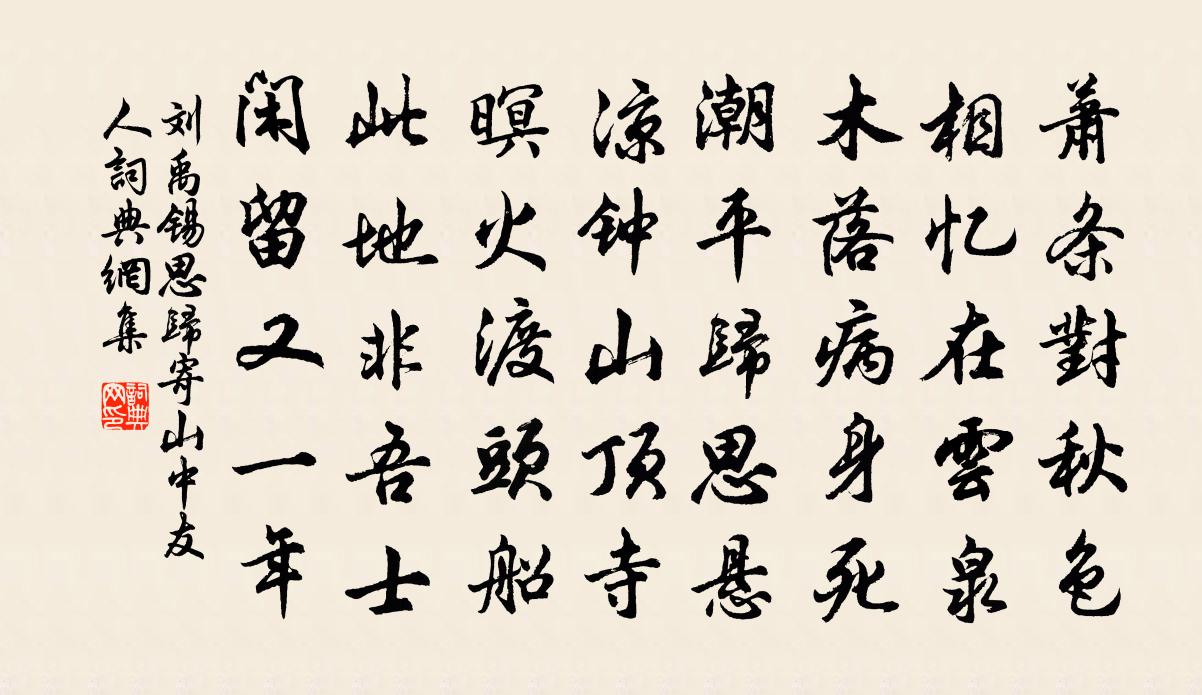 萧条對秋色
相忆在雲泉
木落病身死
潮平歸思悬
凉钟山顶寺
暝火渡頭船
此地非吾士
闲留又一年
刘禹锡思歸寄山中友
人詞典網集
詞典
网印